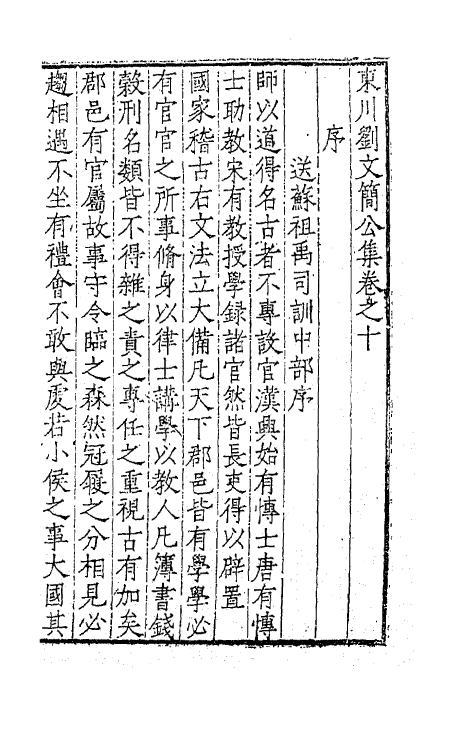 東川劉文簡公集卷之十
序
送蘇祖禹司訓中部序
師以道得名古者不專設官漢興始有博士唐有博
士助教宋有教授學録諸官然皆長吏得以辟置
國家稽古右文法立大備凡天下郡邑皆有學學必
有官官之所事脩身以律士講學以教人凡簿書錢
穀刑名類皆不得雜之責之專任之重視古有加矣
郡邑有官屬故事守令臨之森然冠屨之分相見必
趨相遇不坐有禮會不敢與處若小侯之事大國其